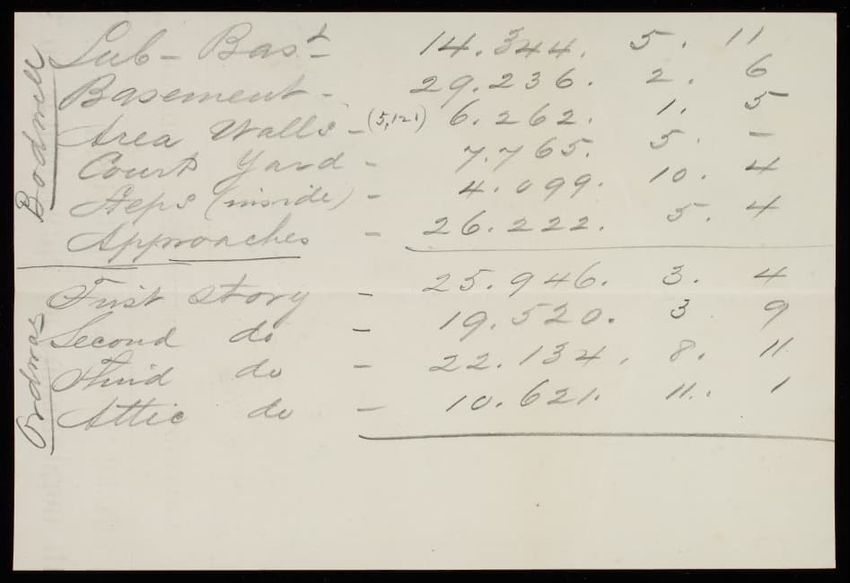 Bodwell
Sub-Bast - 14.344. 5. 11
Basement - 29.236. 2. 6
Area Walls - (5,121) 6.262. 1. 5
Court Yard - 7.765. 5. -
Steps (inside) - 4.099. 10. 4
Approaches - 26.222. 5. 4
Ordway
First Story - 25.946. 3. 4
Second do - 19.520. 3 9
Third do - 22.134. 8. 11
Attic do - 10.621. 11. 1